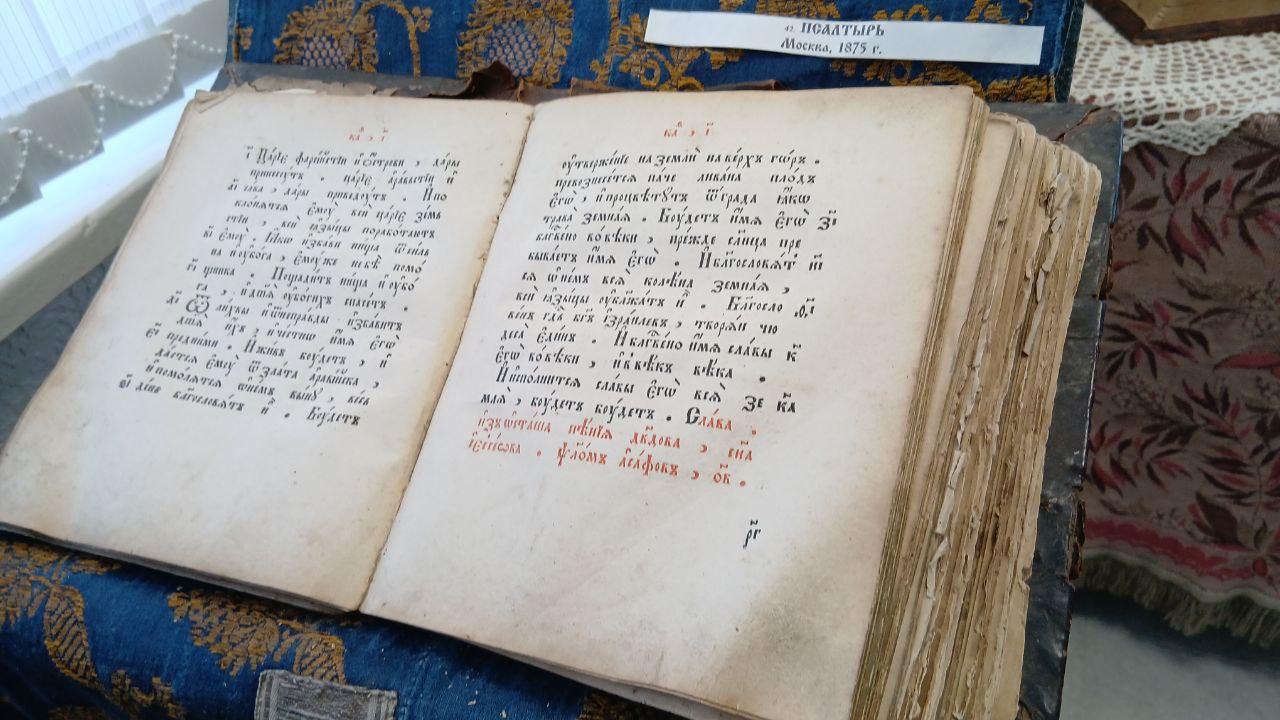 42. ПСАЛТЫРЬ
Москва, 1875 г.
ка҃ , і҃
і҃ Ца́рїе фарсі́йстїи и҆ѻ҆́строви , да́ры
принесу́тъ . ца́рїе а҆ра́вьстїи и҆
а҃і са́ва , да́ры приведу́тъ . И҆по
кло́нятся є҆мꙋ̀ вси ца́рїе зе́мь
стїи , всѝ ꙗ҆зы́цы порабо́таютъ
в҃і є҆мꙋ̀ . Ꙗ҆́кѡ и҆зба́ви ни́ща ѿси́льна
на и҆ꙋ҆бо́га , є҆мꙋ́же не бѣ̀ помо́
г҃і щника . Пощади́тъ ни́ща и҆ꙋ҆бо́
га , и҆дш҃а ꙋ҆бо́гихъ спасе́тъ .
д҃і Ѿли́хвы и҆ѿнепра́вды и҆зба́витъ
дш҃а и҆́хъ , и҆че́стно и҆́мя є҆гѡ̀
є҃і предни́ми . И҆жи́въ бꙋ́детъ , и҆
да́стся є҆мꙋ̀ ѿзла́та а҆раві́йска ,
и҆помо́лятся ѡ҆не́мъ вы́нꙋ , ве́сь
де́нь блгⷭ҇овя́тъ и҆̀ . Бꙋ́детъ
ка҃ , і҃
ᲂу҆твержє́нїе на землѝ на ве́рхъ го́ръ .
превознесе́тся па́че лива́на пло́дъ
є҆гѡ̀ , и҆процвѣтꙋ́тъ ѿгра́да ꙗ҆́кѡ
трава̀ земна́я . Бꙋ́детъ и҆́мя є҆гѡ̀ з҃і
благⷭ҇ве́но вовѣ́ки , пре́жде со́лнца пре
быва́етъ и҆́мя є҆гѡ̀ . И҆благослове́тⷭ҇ и҃і
ся ѡ҆не́мъ всѧ̀ колѣ́на земна́я ,
всѝ ꙗ҆зы́цы ᲂу҆блажа́тъ и҆̀ . Благосло ѳ҃і
ве́нъ гдⷭ҇ь бг҃ъ і҆зра́илевъ , творя́и чю
деса̀ є҆ди́нъ . И҆благⷭ҇ве́но и҆́мя сла́вы к҃
є҆гѡ̀ вовѣ́ки , и҆ввѣ́къ вѣ́ка .
И҆и҆спо́лнится сла́вы є҆гѡ̀ всѧ̀ зе к҃а
мля̀ , бꙋ́детъ бꙋ́детъ . Сла́ва .
И҆зъѡста́ша пѣ́нїя двд҃ова , сн҃а
і҆ессе́ова . ѱало́мъ а҆са́фовъ , о҃в .
рг҃